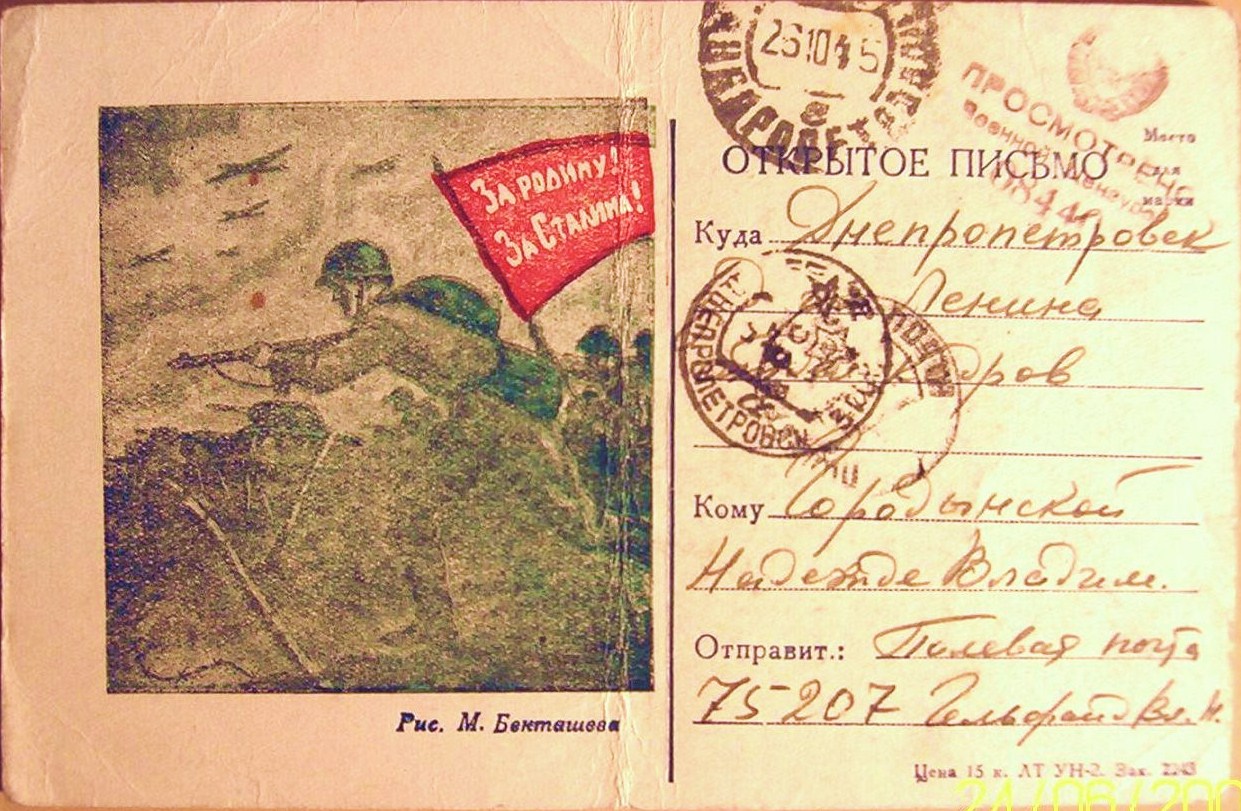 За родину!
За Сталина!
Рис. М. Бенташева
26 10 4 5
ДНЕПРОПЕТРОВСК
ПРОСМОТРЕНО
Военной Цензурой
08440
Место
для
марки
ОТКРЫТОЕ ПИСЬМО
Куда Днепропетровск
Ленина
ДНЕПРОПЕТРОВСК
Кому Городынской
Надежде Владим.
Отправит.: Полевая почта
75207 Гельфанд Вл. Н.
Цена 15 к. ЛТ УН-2. Зак. 2243
24/06/200